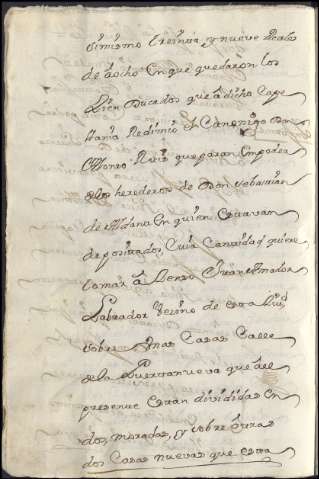 simismo treinta, y nueve Reales
de a ocho en que quedaron los
Cien Ducados que a dicha Cape
llania Redimio el Canonigo Don
Alonso Ruiz que paran en poder
de los herederos de Don sebastian
de en quien estavan
depositados, cuia cantidad quiere
tomar a Zenso Juan Amador
Labrador Vezino de esta Ciud
sobre Unas Casas Calle
de la Puertanueva que a el
presente estan divididas en
dos, moradas, y sobre otras
dos Casas nuevas que esta